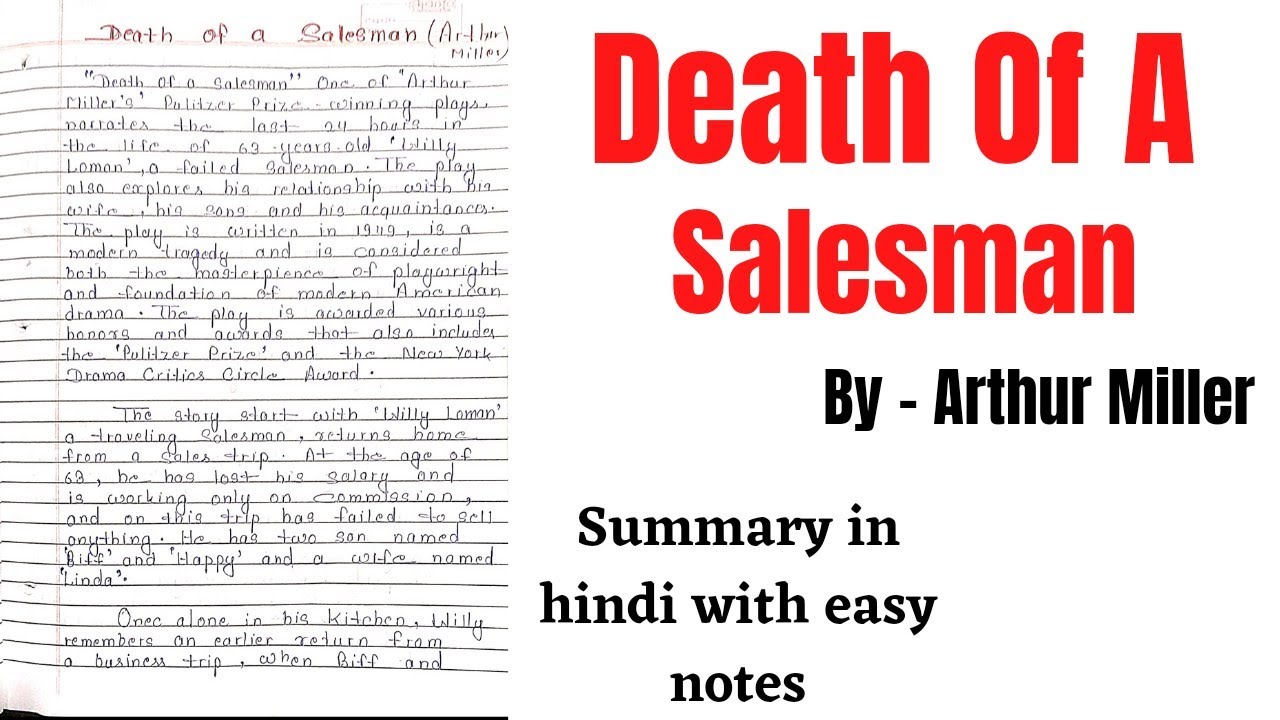 Death of a Salesman (Arthur
Miller)
"Death of a Salesman" One of "Arthur
Miller's' Pulitzer Prize-winning plays,
narrates the last 24 hours in
the life of 63-years-old 'Willy
Loman', a failed salesman. The play
also explores his relationship with his
wife, his sons and his acquaintances.
The play is written in 1949, is a
modern tragedy and is considered
both the masterpience of playwright
and foundation of modern American
drama. The play is awarded various
honors and awards that also includes
the 'Pulitzer Prize' and the New York
Drama Critics Circle Award.
The story start with 'Willy Loman'
a traveling salesman, returns home
from a sales trip. At the age of
63, he has lost his salary and
is working only on commission,
and on this trip has failed to sell
anything. He has two son named
'Biff' and 'Happy' and a wife named
'Linda'.
Once alone in his kitchen, Willy
remembers an earlier return from
a business trip, when Biff and
Death Of A
Salesman
By - Arthur Miller
Summary in
hindi with easy
notes